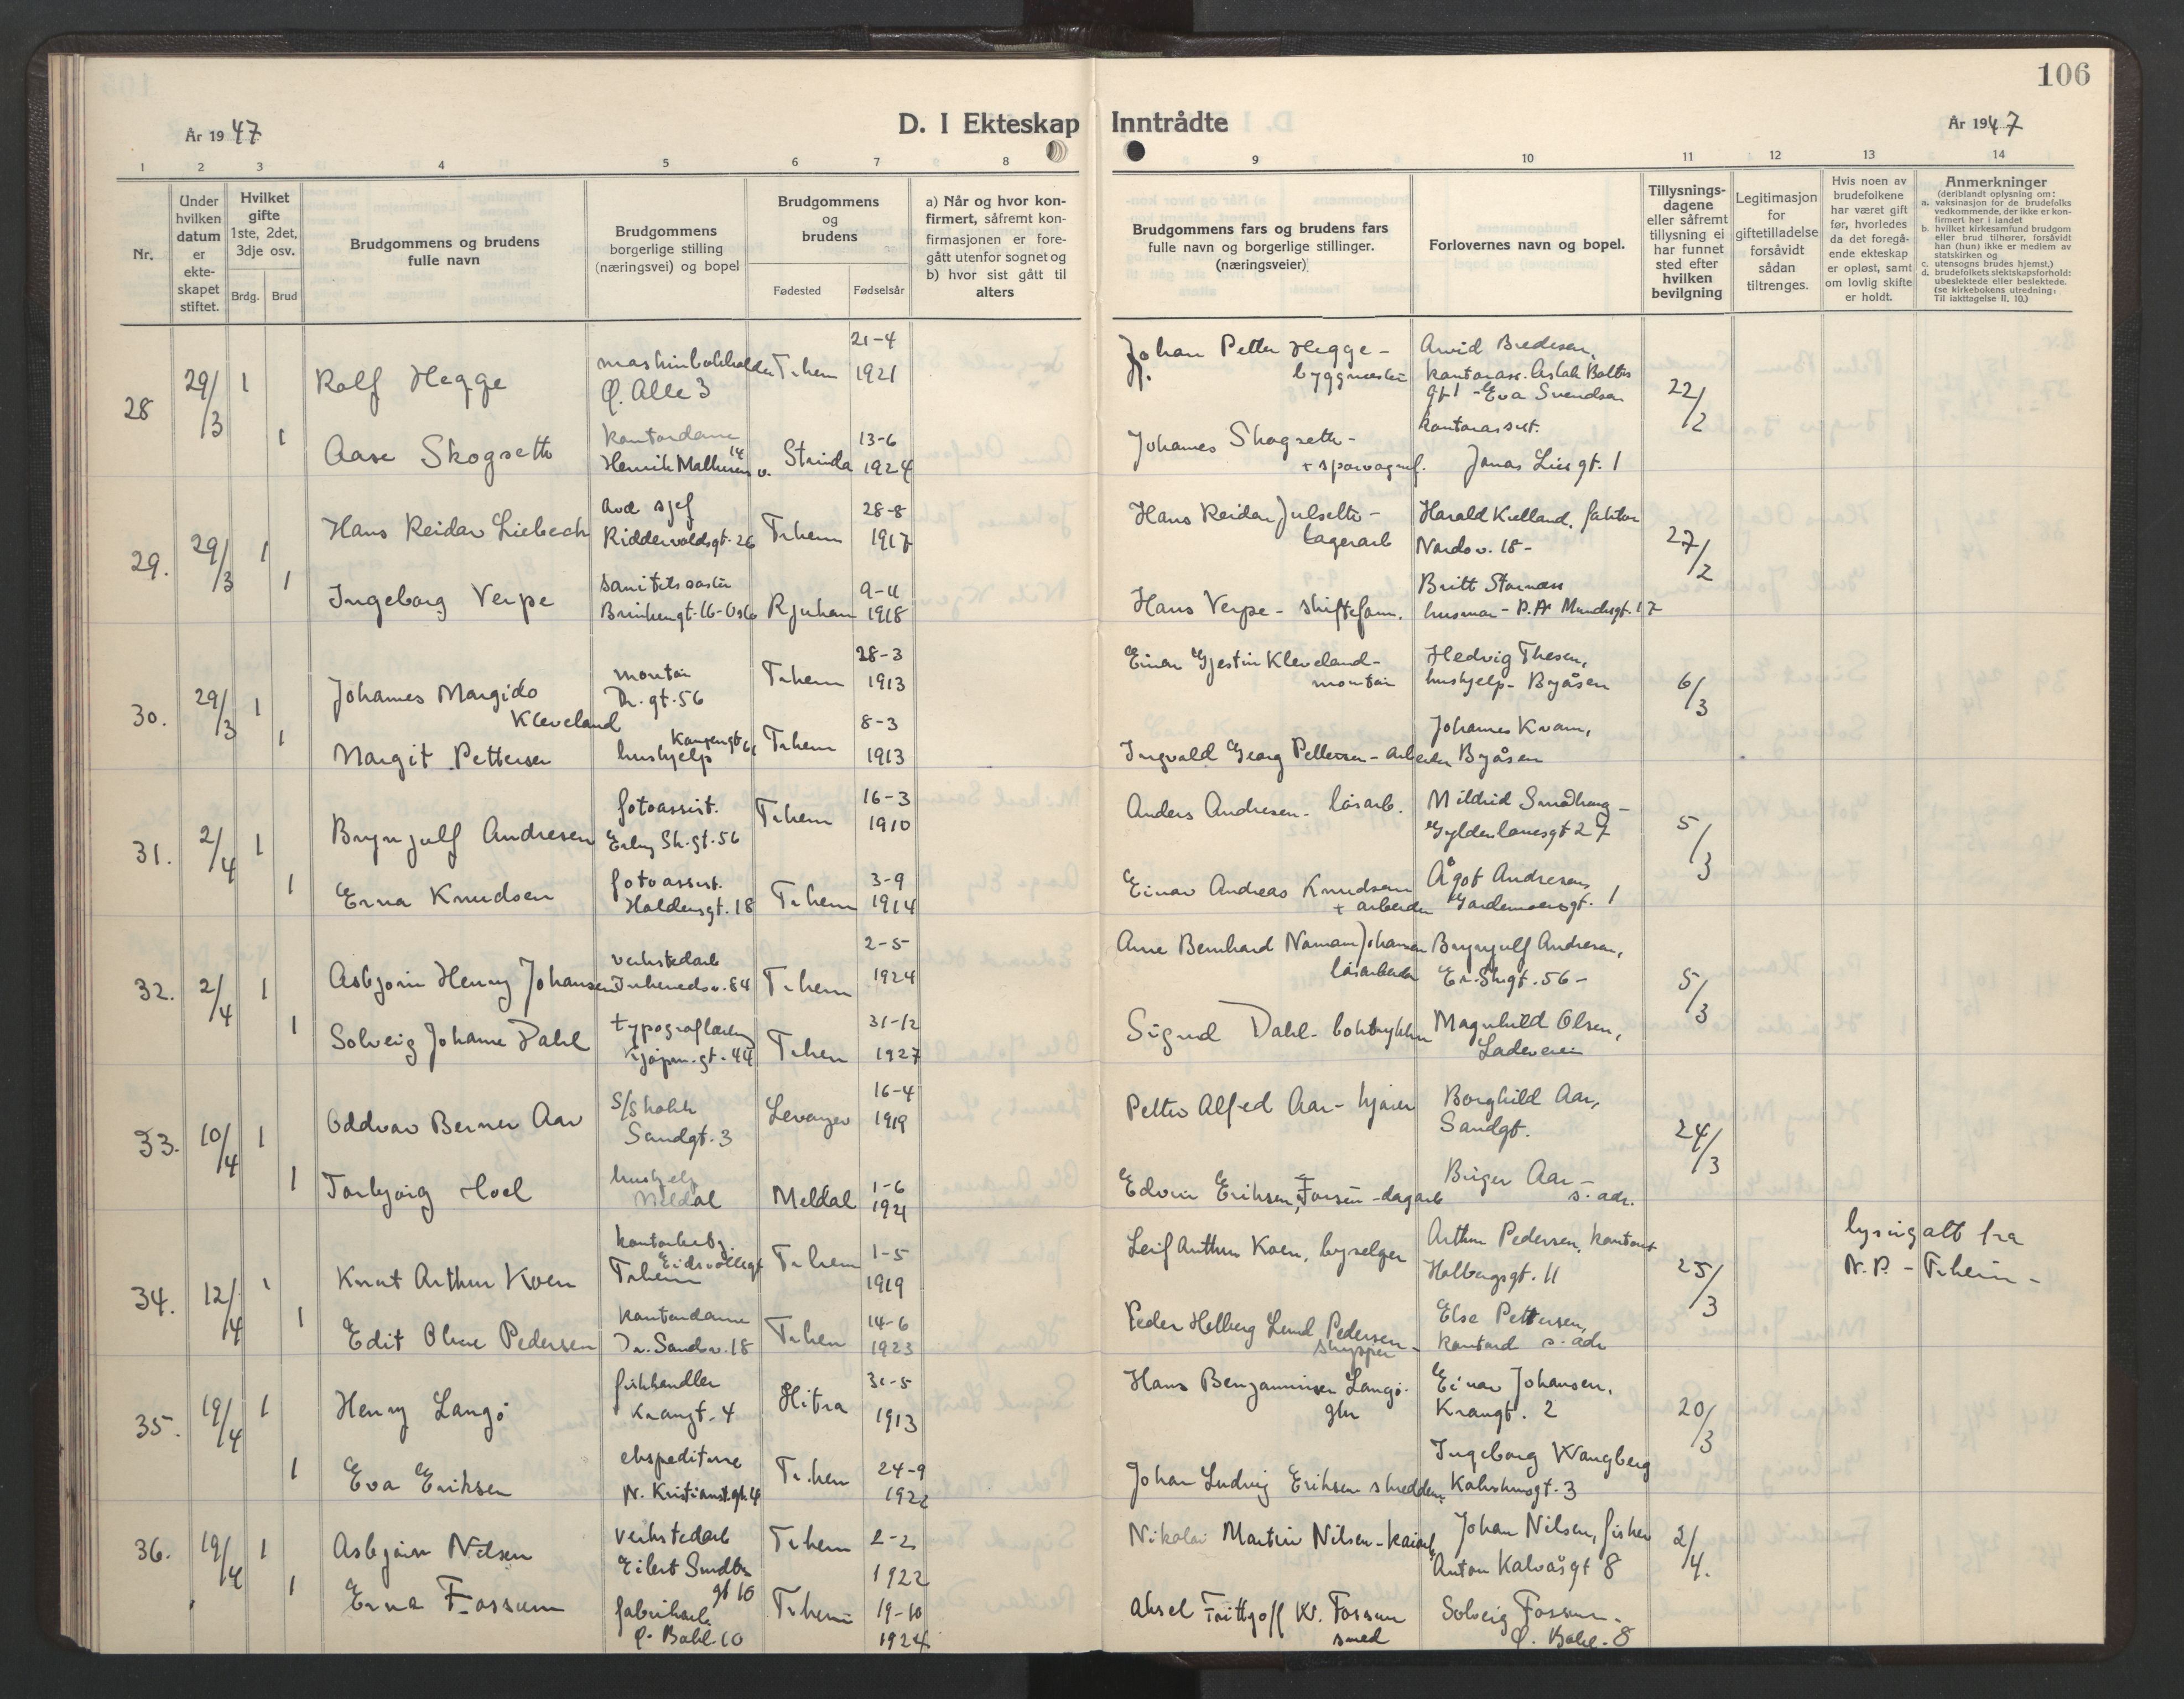 106
D. I Ekteskap Inntrådte
År 1947
År 1947
1 2 3 4 5 6 7 8 9 10 11 12 13 14
Nr.
Under hvilken datum er ekte-skapet stiftet.
Hvilket gifte 1ste, 2det, 3dje osv.
Brdg. Brud
Brudgommens og brudens fulle navn
Brudgommens borgerlige stilling (næringsvei) og bopel
Brudgommens og brudens
Fødested Fødselsår
a) Når og hvor kon-firmert, såfremt kon-firmasjonen er fore-gått utenfor sognet og b) hvor sist gått til alters
Brudgommens fars og brudens fars fulle navn og borgerlige stillinger. (næringsveier)
Forlovernes navn og bopel.
Tillysnings-dagene eller såfremt tillysning ei har funnet sted efter hvilken bevilgning
Legitimasjon for giftetilladelse forsåvidt sådan tiltrenges.
Hvis noen av brudefolkene har været gift før, hvorledes da det foregå-ende ekteskap er opløst, samt om lovlig skifte er holdt.
Anmerkninger
(deriblandt oplysning om:
a. vaksinasjon for de brudefolks vedkommende, der ikke er kon-firmert her i landet
b. hvilket kirkesamfund brudgom eller brud tilhører, forsåvidt han (hun) ikke er medlem av statskirken og
c. utensogns brudes hjemst.)
d. brudefolkets slektskapsforhold: ubeslektede eller beslektede. (se kirkebokens utredning: Til iakttagelse II. 10.)
28 29/3 1 Rolf Hegge
Ø. Alle 3
Trheim 21-4 1921
Johan Petter Hegge - byggmester
Arvid Bredesen,
gt 1 - Eva Svendsen
22/2
1 Aase Skogseth
kontordame
Strinda 13-6 1924
Johannes Skogseth -
kontorassist.
Jonas Lies gt. 1
29. 29/3 1 Hans Reidar Liebech
avd sjef
Riddervoldsgt. 26
Trheim 28-8 1917
Hans Reidar Julseth -
lagerarb
Nardov. 18 -
27/2
1 Ingeborg Verpe
Rjukan 9-11 1918
Hans Verpe - skiftefom.
Britt Stornæss
30. 29/3 1 Johannes Margido
Kleveland
montør
Dr. gt. 56
Trheim 28-3 1913
Einar Gjestin Kleveland -
montør
Hedvig Thesen,
hushjelp - Byåsen
6/3
1 Margit Pettersen
hushjelp
Trheim 8-3 1913
Ingvald Georg Pettersen - arbeider
Johannes Kvam,
Byåsen
31. 2/4 1 Brynjulf Andresen
fotoassist.
Erling Sk. gt. 56
Trheim 16-3 1910
Anders Andresen - løsarb.
Mildrid Smedhaug -
Gyldenløvesgt 27
5/3
1 Erna Knudsen
fotoassist.
Haldensgt. 18
Trheim 3-9 1914
Einar Andreas Knudsen
+ arbeider
Ågot Andresen,
Gardemoensgt. 1
32. 2/4 1 Asbjørn Henry Johansen
verkstedarb
Inherredsv. 84
Trheim 2-5 1924
Arne Bernhard Normann Johansen
løsarbeider
Brynjulf Andresen,
Er. Skgt. 56 -
5/3
1 Solveig Johanne Dahl
Kjøpm. gt. 44
Trheim 31-12 1927
Sigurd Dahl - boktrykker
Magnhild Olsen,
Ladeveien
33. 10/4 1 Oddvar Berner Aar
Sandgt. 3
Levanger 16-4 1919
Petter Alfred Aar - kjører
Borghild Aar,
Sandgt.
24/3
1 Torbjørg Hoel
hushjelp
Meldal
Meldal 1-6 1921
Edvin Eriksen, Forseth - dagarb
Birger Aar -
s. adr.
34. 12/4 1 Knut Arthur Koen
Trheim
Trheim 1-5 1919
Leif Arthur Koen, byselger
Arthur Pedersen, kontorist
Holbergsgt. 11
25/3
lysing att fra
N. P. - Trheim -
1 Edit Olene Pedersen
kontordame
Dr. Sandsv. 18
Trheim 14-6 1923
Peder Helberg Lund Pedersen
skipper
Else Pettersen,
kontord s. adr
35. 19/4 1 Henry Langø
fiskhandler
Krangt. 4
Hitra 31-5 1913
Hans Benjaminsen Langø.
gbr
Einar Johansen,
Krangt. 2
20/3
1 Eva Eriksen
ekspeditrise
N. Kristianst. gt. 4
Trheim 24-9 1922
Johan Ludvig Eriksen skredder
Ingeborg Wangberg
36. 19/4 1 Asbjørn Nilsen
verkstedarb
Eilert Sundts
gt 10
Trheim 2-2 1922
Nikolai Martin Nilsen - kaiarb
Johan Nilsen, fisker
Anton Kalvåsgt 8
2/4.
1 Erna Fossum
fabrikarb.
Ø. Bakl. 10
Trheim 19-10 1924
Aksel Frithjoff Kr. Fossum
smed
Solveig Fossum -
Ø. Bakl. 8